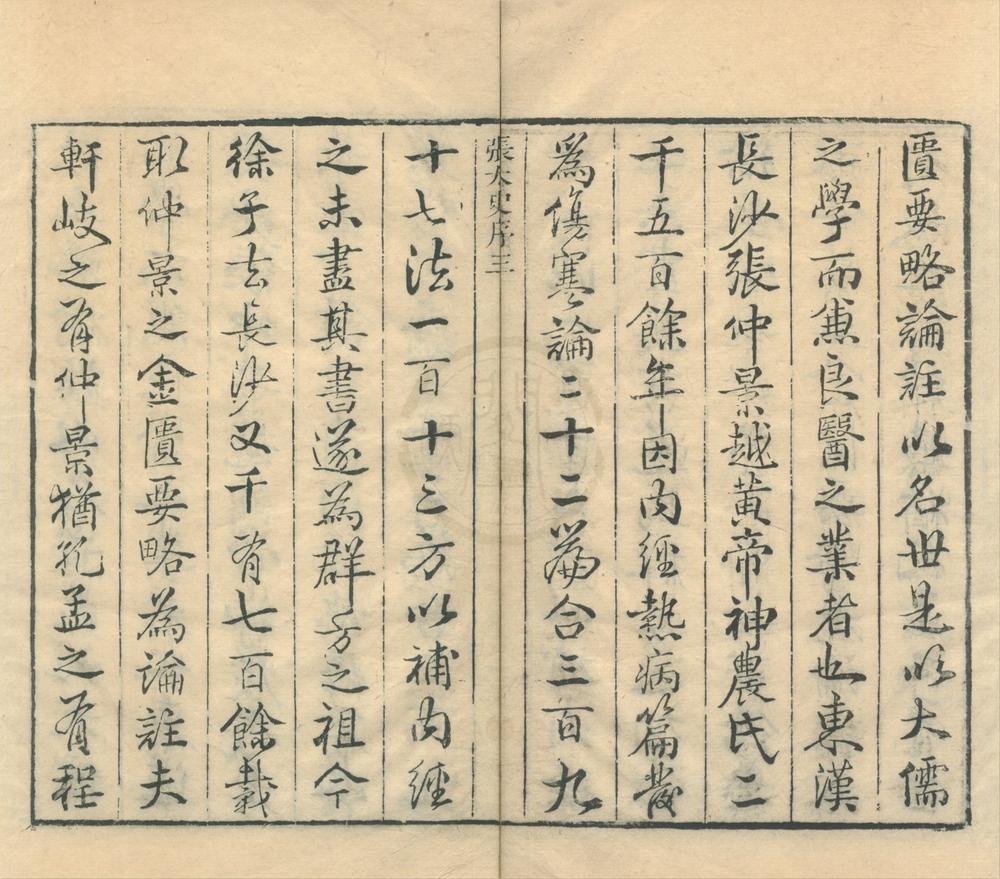 匱要略論註以名世是以大儒
之學而兼良醫之業者也東漢
長沙張仲景越黃帝神農氏二
千五百餘年因內經熱病篇發
為傷寒論二十二篇合三百九
張太史序三
十七法一百十三方以補內經
之未盡其書遂為群方之祖今
徐子去長沙又千有七百餘載
取仲景之金匱要略為論註夫
軒岐之有仲景猶孔孟之有程